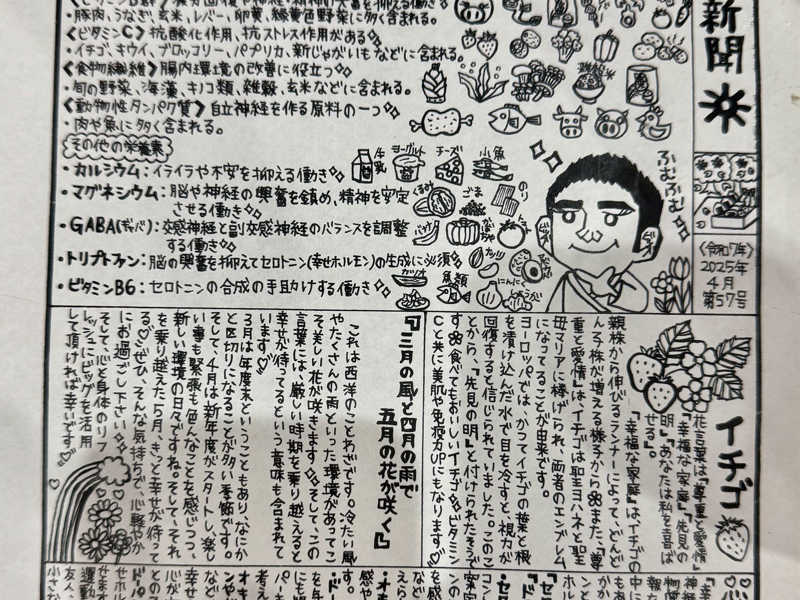 新聞
《令和7年》
2025年
4月
第57号
・豚肉、うなぎ、玄米、レバー、卵黄、緑黄色野菜に多く含まれる。
《ビタミンC》抗酸化作用、抗ストレス作用がある
・イチゴ、キウイ、ブロッコリー、パプリカ、新じゃがいもなどに含まれる。
《食物繊維》腸内環境の改善に役立つ
・旬の野菜、海藻、キノコ類、雑穀、玄米などに含まれる。
《動物性タンパク質》自立神経を作る原料の一つ
・肉や魚に多く含まれる。
その他の栄養素
・カルシウム:イライラや不安を抑える働き
・マグネシウム:脳や神経の興奮を鎮め、精神を安定
させる働き
・GABA(ギャバ):交感神経と副交感神経のバランスを調整
する働き
・トリプトファン:脳の興奮を抑えてセロトニン(幸せホルモン)の生成に必須
・ビタミンB6:セロトニンの合成の手助けする働き
牛乳
ヨーグルト
チーズ
小魚
くるみ
ごま
のり
バナナ
かぼちゃ
トマト
カツオ
魚類
にんにく
ふむふむ
イチゴ
花言葉は『尊重と愛情』
『幸福な家庭』『先見の
明』『あなたは私を喜ば
せる』。
『幸福な家庭』はイチゴの
親株から伸びるランナーによって、どんど
ん子株が増える様子から。また、『尊
重と愛情』は、イチゴは聖ヨハネと聖
母マリアに捧げられ、両者のエンブレム
になっていることが由来です。
ヨーロッパでは、かつてイチゴの葉と根
を漬け込んだ水で目を冷すと、視力が
回復すると信じられていました。このこ
とから、『先見の明』と付けられたそうで
す。食べてもおいしいイチゴ。ビタミン
Cと共に美肌や免疫力UPにもなります♡
『三月の風と四月の雨で
五月の花が咲く』
これは西洋のことわざです。冷たい風
やたくさんの雨といった環境があってこ
そ美しい花が咲きます。そして、この
言葉には、厳しい時期を乗り越えると
幸せが待ってるという意味も含まれて
います♡
3月は年度末ということもあり、なにか
と区切りになることが多い季節です。
そして、4月は新年度がスタートし、楽し
い事も緊張も色んなことを感じつつ、
新しい環境の日々ですね。そして、それ
を乗り越えた5月、きっと幸せが待って
る♡ぜひ、そんな気持ちで、心軽やか
にお過ごし下さい
そして、心と身体のリフ
レッシュにビッグを活用
して頂ければ幸いです♡